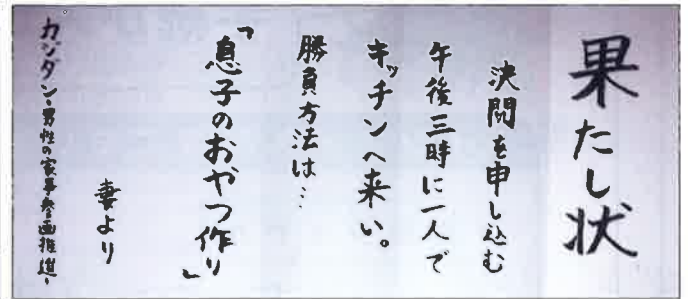 果たし状
決闘を申し込む
午後三時に一人で
キッチンへ来い。
勝負方法は…
「息子のおやつ作り」
妻より
カジダン・男性の家事参画推進・